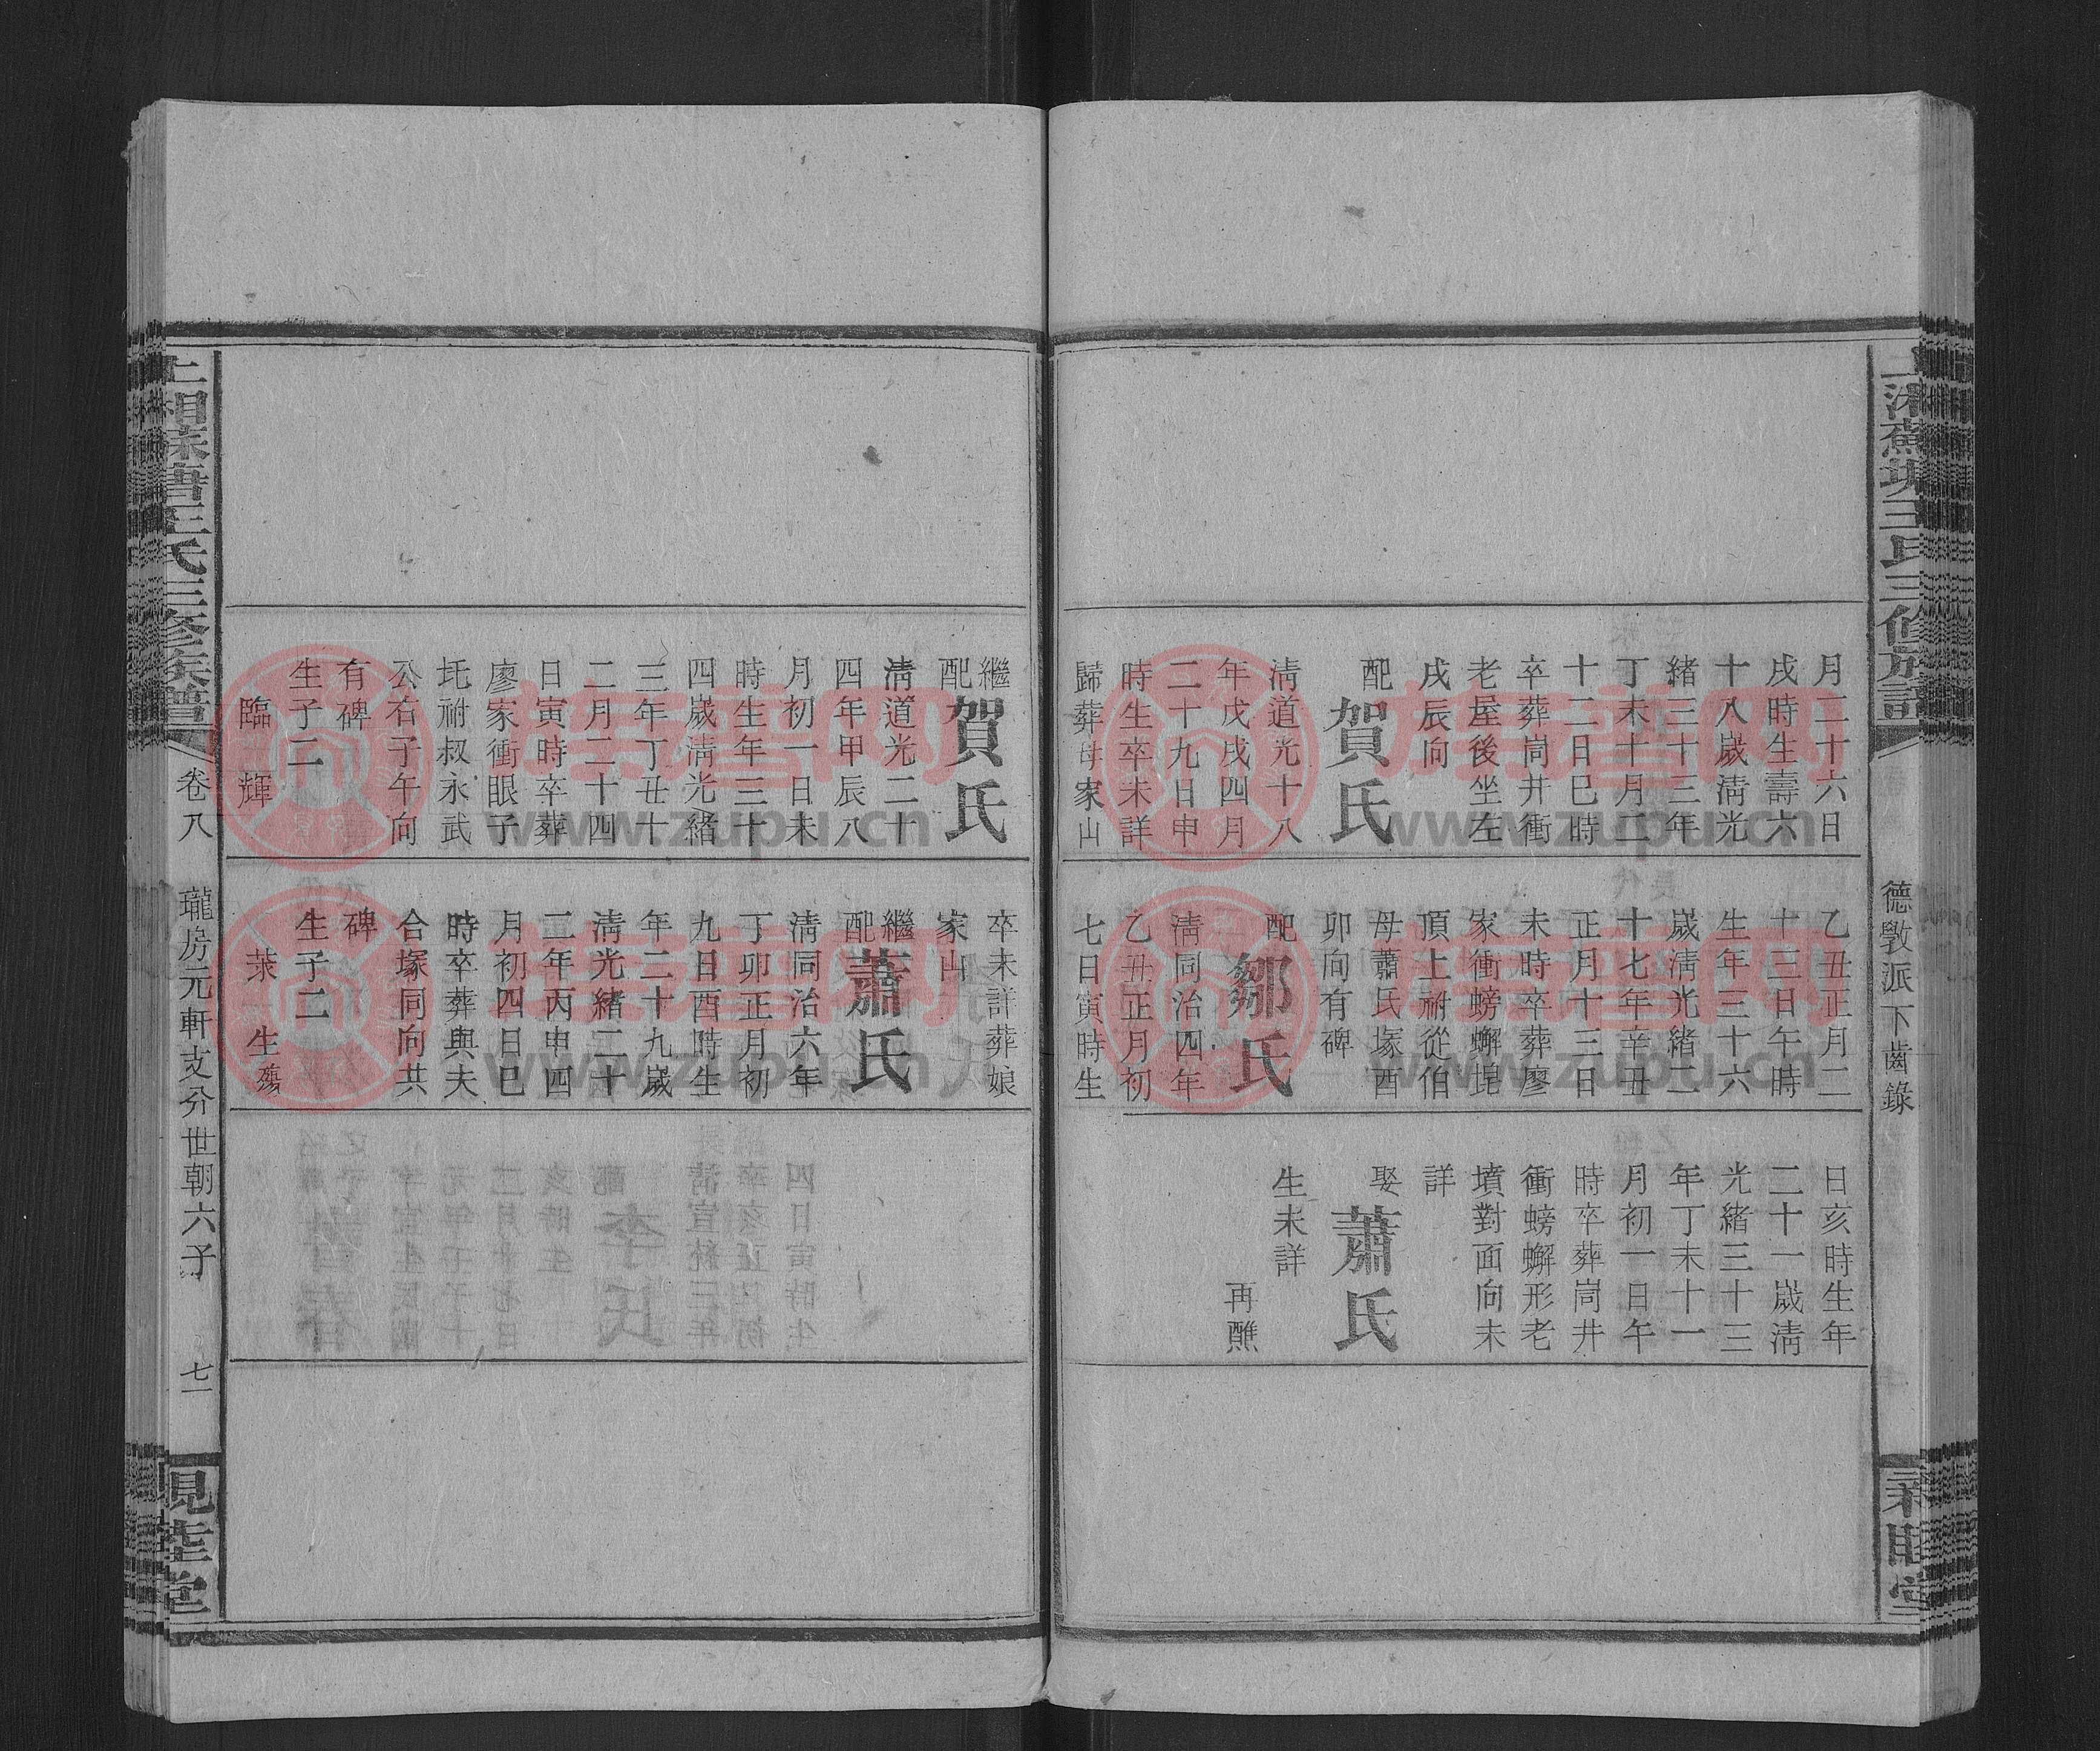 德斆派下齒錄
月二十六日
戌時生壽六
十八歲淸光
緒三十三年
丁未十月二
十二日巳時
卒葬峝井衝
老屋後坐左
戌辰向
配
賀氏
淸道光十八
年戊戌四月
二十九日申
時生卒未詳
歸葬母家山
乙丑正月二
十三日午時
生年三十六
歲淸光緒二
十七年辛丑
正月十三日
未時卒葬廖
家衝螃蠏
頂上祔從伯
母蕭氏塚酉
卯向有碑
配
鄒氏
淸同治四年
乙丑正月初
七日寅時生
日亥時生年
二十一歲淸
光緒三十三
年丁未十一
月初一日午
時卒葬峝井
衝螃蠏形老
墳對面向未
詳
娶
蕭氏
生未詳
再醮
繼配
賀氏
淸道光二十
四年甲辰八
月初一日未
時生年三十
四歲淸光緒
三年丁丑十
二月二十四
日寅時卒葬
廖家衝眼子
坉祔叔永武
公右子午向
有碑
生子二
臨 輝
卒未詳葬娘
家山
繼配
蕭氏
淸同治六年
丁卯正月初
九日酉時生
年二十九歲
淸光緒二十
二年丙申四
月初四日巳
時卒葬與夫
合塚同向共
碑
生子二
萊 生殤
上湘蔴塘王氏三修族譜
卷八
瓏房元軒支分世朝六子
七一
槐堂
族譜网
www.zupu.cn
族譜网
www.zupu.cn
族譜网
www.zupu.cn
族譜网
www.zupu.cn